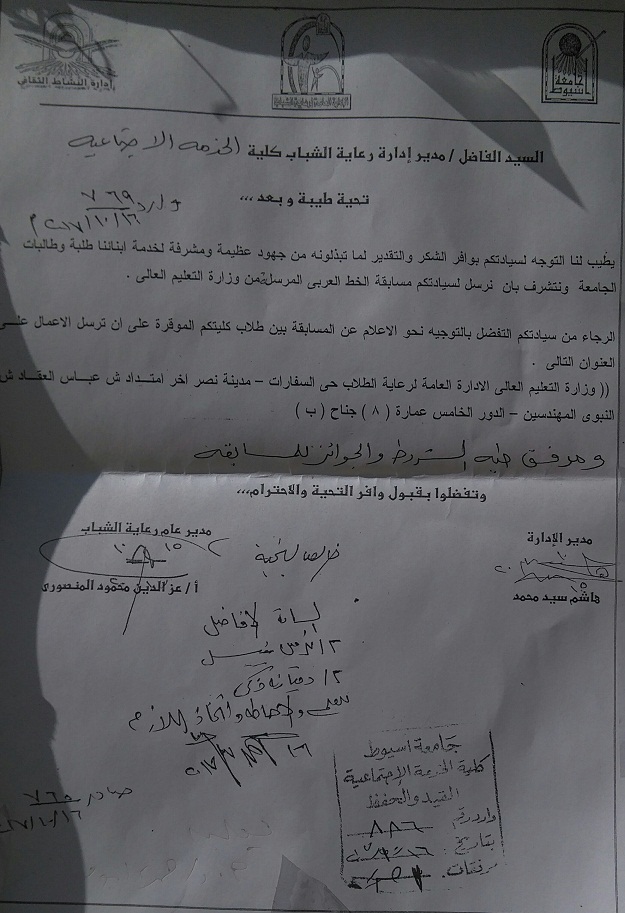 إدارة النشاط الثقافى
الإدارة العامة لرعاية الشباب
جامعة أسيوط
السيد الفاضل / مدير إدارة رعاية الشباب كلية الخدمة الاجتماعية
تحية طيبة و بعد ،،،
وارد ٧٦٩
٢٠١٧/١٠/١٦ م
يطيب لنا التوجه لسيادتكم بوافر الشكر والتقدير لما تبذلونه من جهود عظيمة ومشرفة لخدمة ابنائنا طلبة وطالبات
الجامعة ونتشرف بان نرسل لسيادتكم مسابقة الخط العربى المرسلة من وزارة التعليم العالى .
الرجاء من سيادتكم التفضل بالتوجيه نحو الاعلام عن المسابقة بين طلاب كليتكم الموقرة على ان ترسل الاعمال على
العنوان التالى .
(( وزارة التعليم العالى الادارة العامة لرعاية الطلاب حى السفارات – مدينة نصر اخر امتداد ش عباس العقاد ش
النبوى المهندسين – الدور الخامس عمارة ( ٨ ) جناح ( ب )
ومرفق طيه الشروط والجوائز للمسابقة
وتفضلوا بقبول وافر التحية والاحترام،،،
مدير الإدارة
هاشم سيد محمد
خالص التحية
مدير عام رعاية الشباب
أ / عز الدين محمود المنصورى
السادة الأفاضل
للعلم والإحاطة واتخاذ اللازم
جامعة اسيوط
كلية الخدمة الإجتماعية
القيد والحفظ
وارد رقم ٨٨٦
بتاريخ :
مرفقات :
صادر ٧٦٥